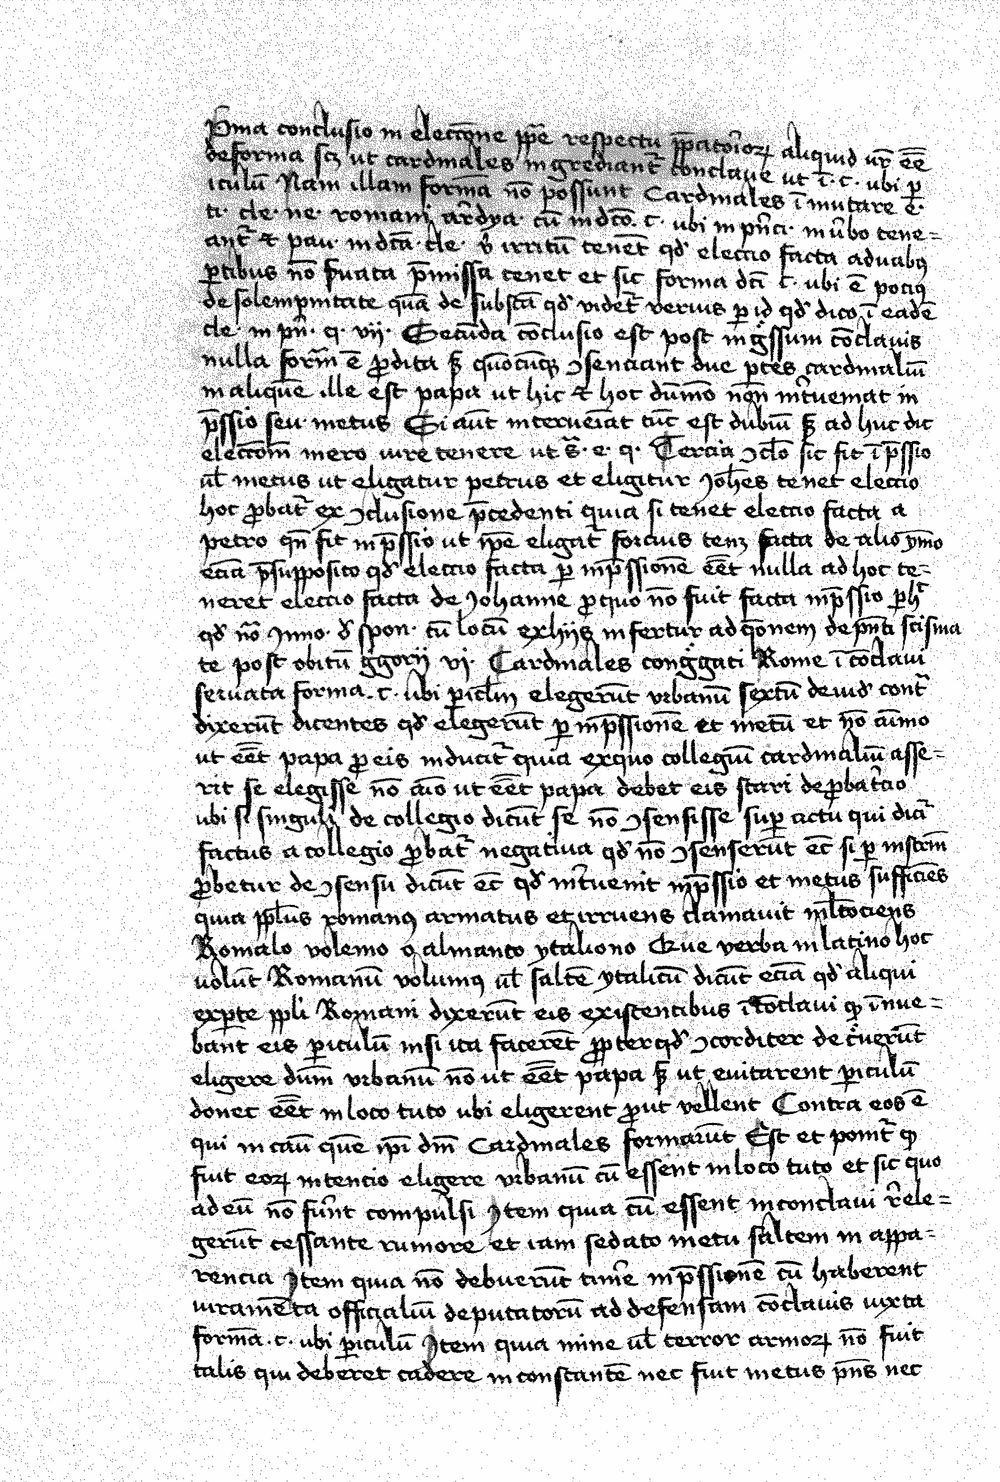 P̄ma conclusio in eleccōne ꝑpe respectu p̄ꝑatorioꝝ aliquid vr̄ eē
de forma scꝫ ut cardinales ingrediant̄ conclave ut ī .c. ubi ꝑ
iculū Nam illam formā nō possunt Cardinales īmutare e.
ti. cle. ne romani ar̄dya. cū in dco. c. ubi in pn̄ci. in v̄bo tene=
ant̄ et pau. in dc̄a cle. irritū tenet̄ qd̄ eleccio facta a duabꝰ
ꝑtibus nō ẜuata p̄missa tenet et sic forma dc̄i c. ubi ē pociꝰ
de solempnitate quā de subsc̄a qd̄ videt̄ verius ꝑ id qd̄ dico ī eadē
cle. in pn̄. q. vij. Secūda cōclusio est post ingͥssum cōclavis
nulla form̄ ē ꝓdita sꝫ quōcūqꝫ ꝯsenciant due ꝑtes cardinaliū
in aliquē ille est papa ut hic et hoc dūmō nōn int̄ueniat in
p̄ssio seu metus Si aūt interueniat tūc est dubiū sꝫ adhuc dic
eleccōm̄ mero iure tenere ut s̄. e. q. Tercia ꝯclo sic fit īp̄ssio
ul̄ metus ut eligatur petrus et eligitur Joh̄es tenet eleccio
hoc ꝓbat̄ ex ꝯclusione p̄cedenti quia si tenet eleccio facta a
petro qn̄ fit inp̄ssio ut ip̄e eligat̄ forcius tenꝫ facta de alio ymo
eciā p̄supposito qd̄ eleccio facta ꝑ inp̄ssionē eēt nulla ad hoc te=
neret eleccio facta de Johanne ꝓ quo nō fuit facta inp̄ssio ꝑ h̄
qd̄ nō Inno. de spon. cū locū ex hijs infertur ad q̄onem de pn̄ti scisma
te post obitū gͥgorij vj. Cardinales congͥgati Rome ī cōclavi
servata forma .c. ubi ꝑicl̄m elegerūt vrbanū sextū deuiđ cont̄
dixerūt dicentes qd̄ elegerūt ꝑ inp̄ssionē et metū et nō aīmo
ut eēt papa ꝓ eis inducit̄ quia ex quo collegiū cardinaliū asse=
rit se elegisse nō aīo ut eēt papa debet eis stari de ꝓbat̄cio
ubi si singuli de collegio dicūt se nō ꝯsensisse suꝑ actu qui dic̄
factus a collegio ꝓbat̄ negativa qd̄ nō ꝯsenserūt ec̄ si ꝑ instrm̄
ꝓbetur de ꝯsensu dicūt ec̄ qd̄ int̄uenit inp̄ssio et metus sufficiēs
quia ppl̄us romanꝰ armatus et irruens clamavit ml̄tociens
Romalo volemo o almanco ytaliono Que verba in latino hoc
volūt Romanū volumꝰ ul̄ saltē ytalicū dicūt eciā qd̄ aliqui
ex ꝑte ppl̄i Romani dixerūt eis existentibus ī cōclavi qꝫ īnue=
bant eis ꝑiculū nisi ita facerēt ꝓpter qd̄ ꝯcorditer decͥuerūt
eligere dūm vrbanū nō ut eēt papa sꝫ ut evitarent ꝑiculū
donec eēt in loco tuto ubi eligerent ꝓut vellent Contra eos ē
qui in cāu quē ip̄i dn̄i Cardinales formarūt Est et ponit̄ qꝫ
fuit eoꝝ intencio eligere vrbanū cū essent in loco tuto et sic quo
ad eū nō fūrnt compulsi Jtem quia cū essent in conclavi r̄ele=
gerūt cessante rumore et iam sedato metu saltem in appa=
rencia Jtem quia nō debuerūt tim̄e inp̄ssionē cū haberent
iuramēta officialiū deputatorū ad defensam cōclavis iuxta
formā .c. ubi ꝑiculū Jtem quia mine ul̄ terror armoꝝ nō fuit
talis qui deberet cadere in constantē nec fuit metus pn̄s nec